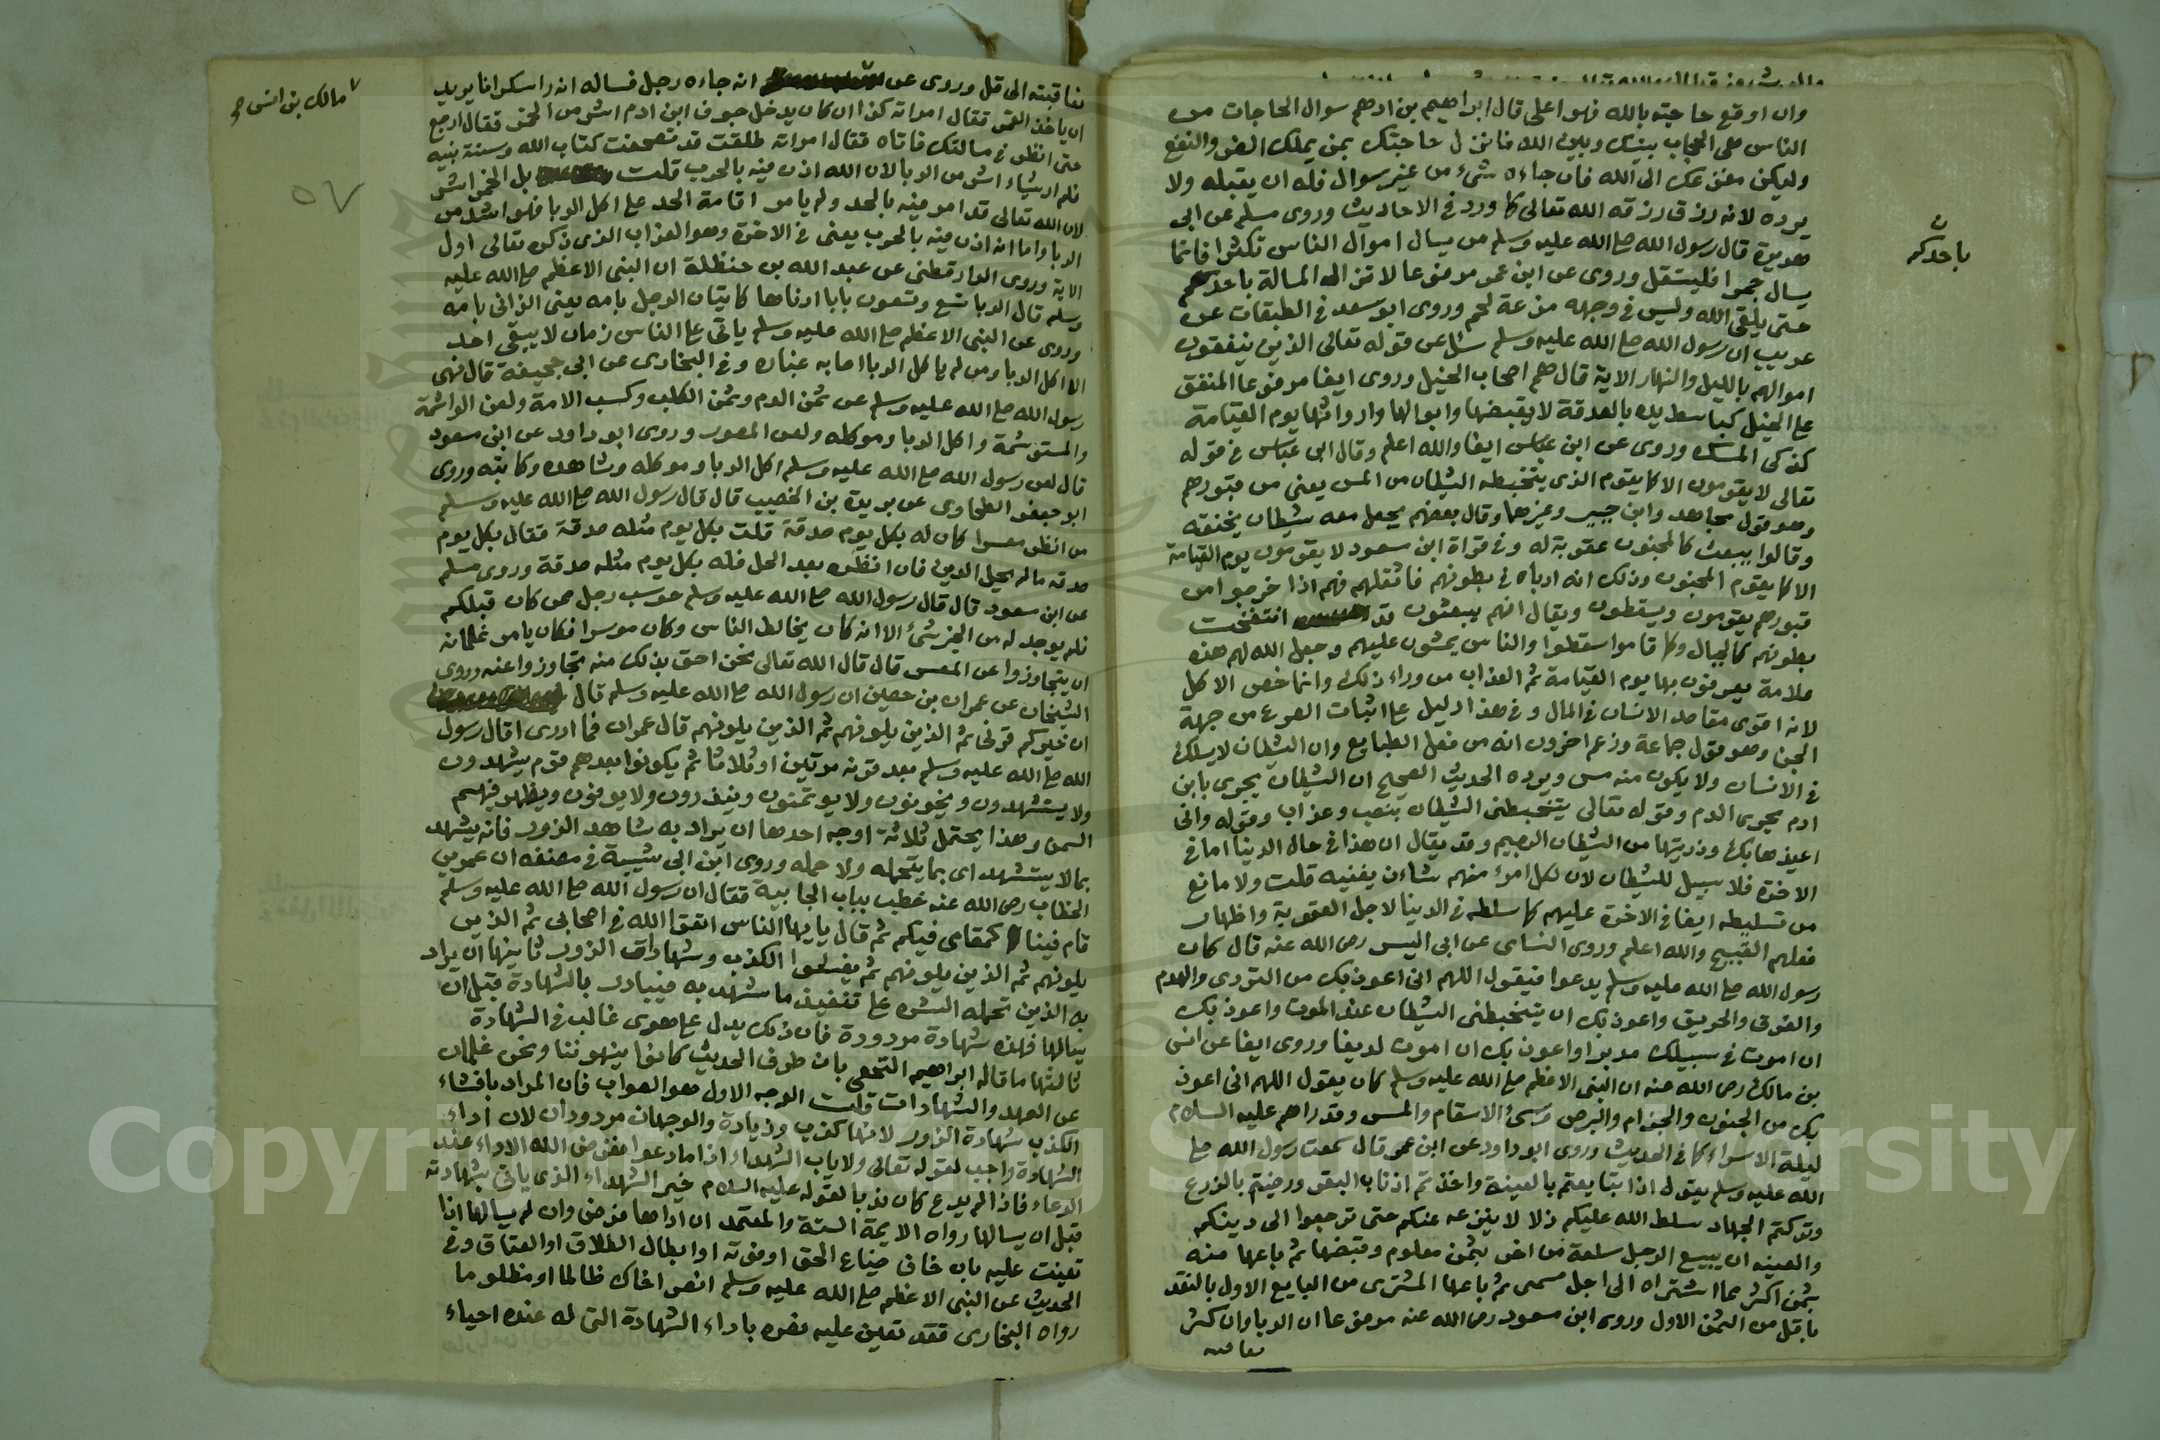 وان اوقع حاجته بالله فهو اعلى قال ابراهيم بن ادهم سوال الحاجات من
الناس هي الحجاب بينك وبين الله فانزل حاجتك بمن يملك الضر والنفع
وليكن مفزعك الى الله فان جاءه شيء من غير سوال فله ان يقبله ولا
يرده لانه رزق رزقه الله تعالى كما ورد في الاحاديث وروى مسلم عن ابي
هريرة قال رسول الله صلى الله عليه وسلم من يسال اموال الناس تكثرا فانما
يسال جمرا فليستقل وروى عن ابن عمر مرفوعا لا تزال المسالة باحدكم
حتى يلقى الله وليس في وجهه مزعة لحم وروى ابو سعد في الطبقات عن
عريب ان رسول الله صلى الله عليه وسلم سئل عن قوله تعالى الذين ينفقون
اموالهم بالليل والنهار الاية قال هم اصحاب الخيل وروى ايضا مرفوعا المنفق
على الخيل كباسط يده بالصدقة لا يقبضها وابوالها واروائها يوم القيامة
كذكي المسك وروى عن ابن عباس ايضا والله اعلم وقال ابن عباس في قوله
تعالى لا يقومون الا كما يقوم الذي يتخبطه الشيطان من المس يعني من قبورهم
وهو قول مجاهد وابن جبير وغيرهما وقال بعضهم يجعل معه شيطان يخنقه
وقالوا يبعث كالمجنون عقوبة له وفي قراة ابن مسعود لا يقومون يوم القيامة
الا كما يقوم المجنون وذلك انه ارباه في بطونهم فاثقلهم فهم اذا خرجوا من
قبورهم يقومون ويسقطون ويقال انهم يبعثون قد انتفخت
بطونهم كالجبال وكلما قاموا سقطوا والناس يمشون عليهم وجعل الله لهم هذه
علامة يعرفون بها يوم القيامة ثم العذاب من وراء ذلك وانما خص الاكل
لانه اقوى مقاصد الانسان في المال وفي هذا دليل على اثبات الصرع من جهة
الجن وهو قول جماعة وزعم اخرون انه من فعل الطبايع وان الشيطان لا يسلك
في الانسان ولا يكون منه مس ويرده الحديث الصحيح ان الشيطان يجري بابن
ادم مجرى الدم وقوله تعالى يتخبطني الشيطان بنصب وعذاب وقوله واني
اعيذها بك وذريتها من الشيطان الرجيم وقد يقال ان هذا في حال الدنيا اما في
الاخرة فلا سبيل للشيطان لان لكل امرء منهم شان يغنيه قلت ولا مانع
من تسليطه ايضا في الاخرة عليهم كما سلطه في الدنيا لاجل العقوبة واظهار
فعلهم القبيح والله اعلم وروى النساى عن ابي اليسر رضى الله عنه قال كان
رسول الله صلى الله عليه وسلم يدعوا فيقول اللهم اني اعوذ بك من التردي والهدم
والغرق والحريق واعوذ بك ان يتخبطني الشيطان عند الموت واعوذ بك
ان اموت في سبيلك مدبرا واعوذ بك ان اموت لديغا وروى ايضا عن انس
بن مالك رضى الله عنه ان النبى الاعظم صلى الله عليه وسلم كان يقول اللهم اني اعوذ
بك من الجنون والجذام والبرص وسئ الاسقام والمس وقد راهم عليه السلام
ليلة الاسراء كما في الحديث وروى ابو داود عن ابن عمر قال سمعت رسول الله صلى
الله عليه وسلم يقول اذا تبايعتم بالعينة واخذتم اذناب البقر ورضيتم بالزرع
وتركتم الجهاد سلط الله عليكم ذلا لا ينزعه عنكم حتى ترجعوا الى دينكم
والعينه ان يبيع الرجل سلعة من اخر بثمن معلوم وقبضها ثم باعها منه
بثمن اكثر مما اشتراه الى اجل مسمى ثم باعها المشترى من البايع الاول بالنقد
باقل من الثمن الاول وروى ابن مسعود رضى الله عنه مرفوعا ان الربا وان كثر
فعاقبته
ن
باحدكم
فعاقبته الى قل وروى عن انه جاءه رجل فساله انه را سكرانا يريد
ان ياخذ القمر فقال امراته كذا ان كان يدخل جوف ابن ادم اشر من الخمر فقال ارجع
حتى انظر في مسالتك فاتاه فقال امراته طلقت قد تصفحت كتاب الله وسنة نبيه
فلم ار شياء اشر من الربا لان الله اذن فيه بالحرب قلت بل الخمر اشر
لان الله تعالى قد امر فيه بالحد ولم يامر اقامة الحد على اكل الربا فهو اشد من
الربا واما انه اذن فيه بالحرب يعني في الاخرة وهو العذاب الذى ذكره تعالى اول
الاية وروى الدارقطني عن عبد الله بن حنظلة ان النبى الاعظم صلى الله عليه
وسلم قال الربا تسع وتسعون بابا ادناها كاتيان الرجل بامه يعني الزاني بامه
وروى عن النبى الاعظم صلى الله عليه وسلم ياتى على الناس زمان لا يبقى احد
الا اكل الربا ومن لم ياكل الربا اصابه غباره وفي البخارى عن ابي جحيفة قال نهى
رسول الله صلى الله عليه وسلم عن ثمن الدم وثمن الكلب وكسب الامة ولعن الواشمة
والمستوشمة واكل الربا وموكله ولعن المصور وروى ابو داود عن ابن مسعود
قال لعن رسول الله صلى الله عليه وسلم اكل الربا وموكله وشاهده وكاتبه وروى
ابو جعفر الطحاوى عن بريدة بن الخصيب قال قال رسول الله صلى الله عليه وسلم
من انظر معسرا كان له بكل يوم صدقة قلت بكل يوم مثله صدقة فقال بكل يوم
صدقه ماله يحل الدين فان انظره بعد الحل فله بكل يوم مثله صدقة وروى مسلم
عن ابن مسعود قال قال رسول الله صلى الله عليه وسلم حوسب رجل ممن كان قبلكم
فلم يوجد له من الخير شئ الا انه كان يخالط الناس وكان موسرا فكان يامر غلمانه
ان يتجاوزوا عن المعسر قال قال الله تعالى نحن احق بذلك منه تجاوزوا عنه وروى
الشيخان عن عمران بن حصين ان رسول الله صلى الله عليه وسلم قال
ان خيركم قرني ثم الذين يلونهم ثم الذين يلونهم قال عمران فما ادرى اقال رسول
الله صلى الله عليه وسلم بعد قرنه مرتين او ثلاثا ثم يكونوا بعدهم قوم يشهدون
ولا يستشهدون ويخونون ولا يوتمنون وينذرون ولا يوفون ويظهر فيهم
السمن وهذا يحتمل ثلاثة اوجه احدها ان يراد به شاهد الزور فانه يشهد
بما لا يستشهد اى بما يتحمله ولا حمله وروى ابن ابي شيبة في مصنفه ان عمر بن
الخطاب رضى الله عنه خطب بباب الجابية فقال ان رسول الله صلى الله عليه وسلم
قام فينا كمقامي فيكم ثم قال يايها الناس اتقوا الله في اصحابي ثم الذين
يلونهم ثم الذين يلونهم ثم يفشوا الكذب وشهادات الزور ثانيها ان يراد
به الذين تحمله الشره على تنفيذ ما شهد به فيبادر بالشهادة قبل ان
يسالها فهذه شهادة مردودة فان ذلك يدل على هوى غالب في الشهادة
ثالثها ما قاله ابراهيم النخعى بان طرف الحديث كانوا ينهوننا ونحن غلمان
عن العهد والشهادات قلت الوجه الاول هو الصواب فان المراد بافشاء
الكذب شهادة الزور لانها كذب وزيادة والوجهان مردودان لان اداء
الشهادة واجب لقوله تعالى ولا ياب الشهداء اذا ما دعوا ففرض الله الاداء عند
الدعاء فاذا لم يدع كان ندبا لقوله عليه السلام خير الشهداء الذى ياتي بشهادته
قبل ان يسالها رواه الايمة الستة والمعتمد ان اداها فرض وان لم يسالها اذا
تعينت عليه بان خاف ضياع الحق او فوته او ابطال الطلاق او العتاق وفي
الحديث عن النبى الاعظم صلى الله عليه وسلم انصر اخاك ظالما او مظلوما
رواه البخارى فقد تعين عليه نصره باداء الشهادة التى له عنده احياء
مالك بن انس
٥٧
Copyright © King Saud University